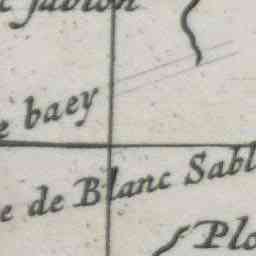 sablon
e baey
e de Blanc Sabl
Plo